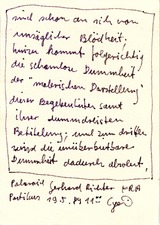 sind schon an sich von
unsäglicher Blödheit;
hinzu kommt folgerichtig
die schamlose Dummheit
der "malerischen Darstellung"
dieser Begebenheiten samt
ihrer dummdreisten
Betitelung; und zum dritten
wird die unüberbietbare
Dummheit dadurch absolut,
Polaroid Gerhard Richter
19.5.89 11